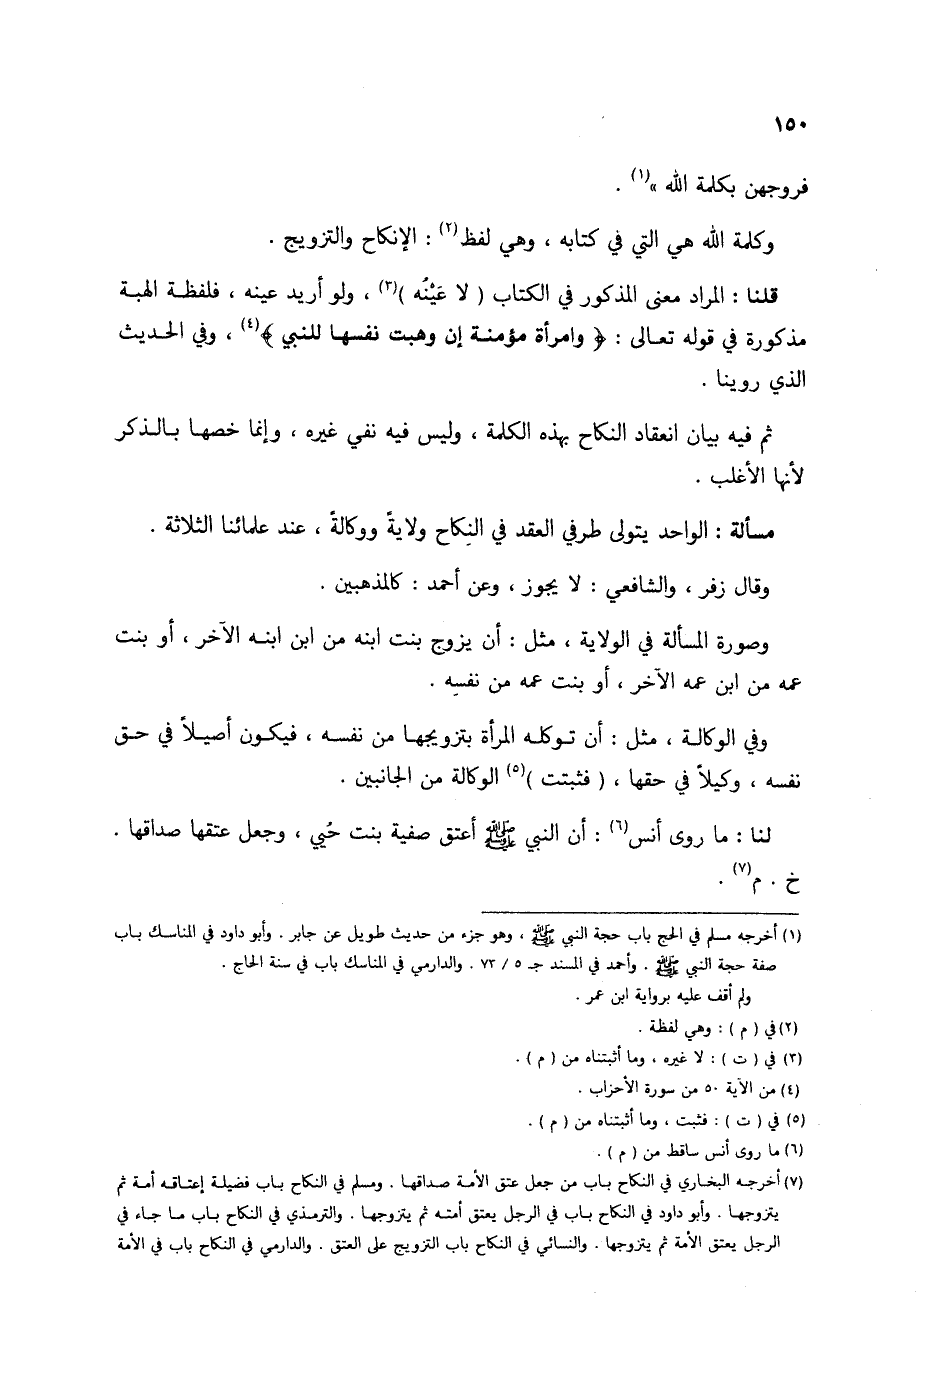 ١٥٠
فروجهن بكلمة الله »(١) .
وكلمة الله هي التي في كتابه ، وهي لفظ(٢) : الإنكاح والتزويج .
قلنا : المراد معنى المذكور في الكتاب ( لا عَيْنُه )(٣) ، ولو أريد عينه ، فلفظة الهبة
مذكورة في قوله تعالى : ﴿ وامرأة مؤمنة إن وهبت نفسها للنبي ﴾(٤) ، وفي الحديث
الذي روينا .
ثم فيه بيان انعقاد النكاح بهذه الكلمة ، وليس فيه نفي غيره ، وإنما خصها بالذكر
لأنها الأغلب .
مسألة : الواحد يتولى طرفي العقد في النكاح ولايةً ووكالةً ، عند علمائنا الثلاثة .
وقال زفر ، والشافعي : لا يجوز ، وعن أحمد : كالمذهبين .
وصورة المسألة في الولاية ، مثل : أن يزوج بنت ابنه من ابن ابنه الآخر ، أو بنت
عمه من ابن عمه الآخر ، أو بنت عمه من نفسه .
وفي الوكالة ، مثل : أن توكله المرأة بتزويجها من نفسه ، فيكون أصيلاً في حق
نفسه ، وكيلاً في حقها ، ( فثبتت )(٥) الوكالة من الجانبين .
لنا : ما روى أنس(٦) : أن النبي ﷺ أعتق صفية بنت حُيي ، وجعل عتقها صداقها .
خ . م(٧) .
(١) أخرجه مسلم في الحج باب حجة النبي ﷺ ، وهو جزء من حديث طويل عن جابر . وأبو داود في المناسك باب
صفة حجة النبي ﷺ . وأحمد في المسند جـ ٥ / ٧٣ . والدارمي في المناسك باب في سنة الحاج .
ولم أقف عليه برواية ابن عمر .
(٢) في ( م ) : وهي لفظة .
(٣) في ( ت ) : لا غيره ، وما أثبتناه من ( م ) .
(٤) من الآية ٥٠ من سورة الأحزاب .
(٥) في ( ت ) : فثبت ، وما أثبتناه من ( م ) .
(٦) ما روى أنس ساقط من ( م ) .
(٧) أخرجه البخاري في النكاح باب من جعل عتق الأمة صداقها . ومسلم في النكاح باب فضيلة إعتاقه أمة ثم
يتزوجها . وأبو داود في النكاح باب في الرجل يعتق أمته ثم يتزوجها . والترمذي في النكاح باب ما جاء في
الرجل يعتق الأمة ثم يتزوجها . والنسائي في النكاح باب التزويج على العتق . والدارمي في النكاح باب في الأمة